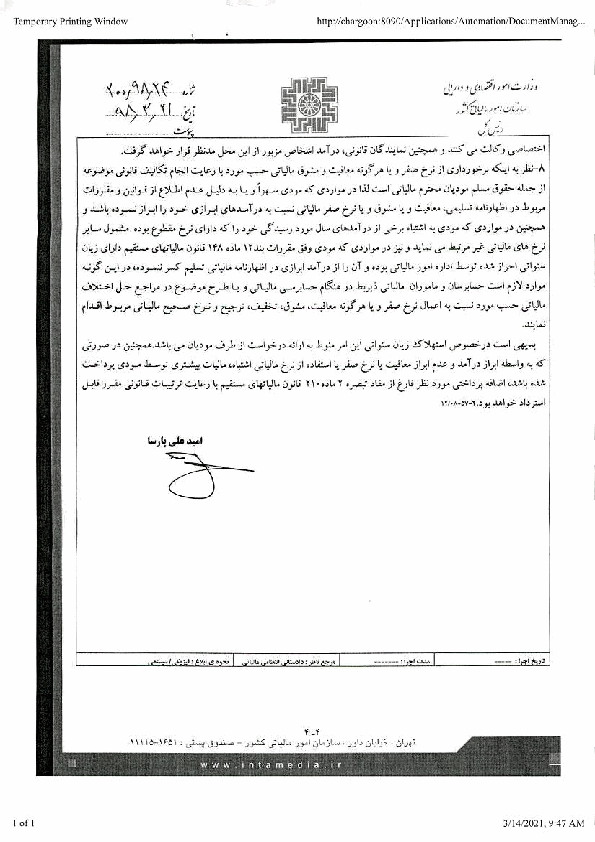 Temporary Printing Window http://chargoon:8090/Applications/Automation/DocumentManag...
وزارت امور اقتصادی و دارایی
سازمان امور مالیاتی کشور
رئیس کل
شماره ۲۰۰/۹۸/۲۴
تاریخ ۹۸,۳,۲۱
پیوست
اختصاصی وکالت می کند. و همچنین نمایندگان قانونی، درآمد اشخاص مزبور از این محل مدنظر قرار خواهد گرفت.
۸-نظر به اینکه برخورداری از نرخ صفر و یا هرگونه معافیت و مشوق مالیاتی حسب مورد با رعایت انجام تکالیف قانونی موضوعه
از جمله حقوق مسلم مودیان محترم مالیاتی است لذا در مواردی که مودی سهواً و یا به دلیل عدم اطلاع از قوانین و مقررات
مربوط در اظهارنامه تسلیمی، معافیت و یا مشوق و یا نرخ صفر مالیاتی نسبت به درآمدهای ابرازی خود را ابراز ننموده باشد و
همچنین در مواردی که مودی به اشتباه برخی از درآمدهای سال مورد رسیدگی خود را که دارای نرخ مقطوع بوده مشمول سایر
نرخ های مالیاتی غیر مرتبط می نماید و نیز در مواردی که مودی وفق مقررات بند ۱۲ ماده ۱۴۸ قانون مالیاتهای مستقیم دارای زیان
سنواتی احراز شده توسط اداره امور مالیاتی بوده و آن را از درآمد ابرازی در اظهارنامه مالیاتی تسلیم کسر ننموده، در این گونه
موارد لازم است حسابرسان و ماموران مالیاتی ذیربط در هنگام حسابرسی مالیاتی و یا طرح موضوع در مراجع حل اختلاف
مالیاتی حسب مورد نسبت به اعمال نرخ صفر و یا هرگونه معافیت، مشوق، تخفیف، ترجیح و نرخ صحیح مالیاتی مربوط اقدام
نمایند.
بدیهی است درخصوص استهلاک زیان سنواتی این امر منوط به ارائه درخواست از طرف مودیان می باشد.همچنین در صورتی
که به واسطه ابراز درآمد و عدم ابراز معافیت یا نرخ صفر یا استفاده از نرخ مالیاتی اشتباه، مالیات بیشتری توسط مودی پرداخت
شده باشد، اضافه پرداختی مورد نظر فارغ از مفاد تبصره ۲ ماده ۲۱۰ قانون مالیاتهای مستقیم با رعایت ترتیبات قانونی مقرر قابل
استرداد خواهد بود.
امید علی پارسا
تاریخ اجرا: ------ مدت اجرا: -------- مرجع ناظر: دادستانی انتظامی مالیاتی نحوه ی ابلاغ: فیزیکی/سیستمی
۴-۴
تهران - خیابان داور - سازمان امور مالیاتی کشور - صندوق پستی : ۱۶۵۱-۱۱۱۱۵
www.intamedia.ir
1 of 1 3/14/2021, 9:47 AM